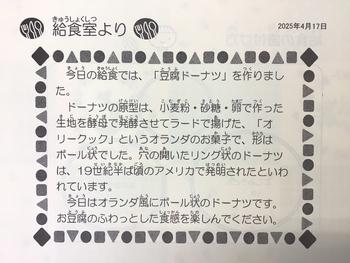 きゅうしょくしつ
給食室より
2025年4月17日
今日の給食では、「豆腐ドーナツ」を作りました。
ドーナツの原型は、小麦粉・砂糖・卵で作った
生地を酵母で発酵させてラードで揚げた、「オ
リークック」というオランダのお菓子で、形は
ボール状でした。穴の開いたリング状のドーナツ
は、19世紀半ば頃のアメリカで発明されたといわ
れています。
今日はオランダ風にボール状のドーナツです。
お豆腐のふわっとした食感を楽しんでください。